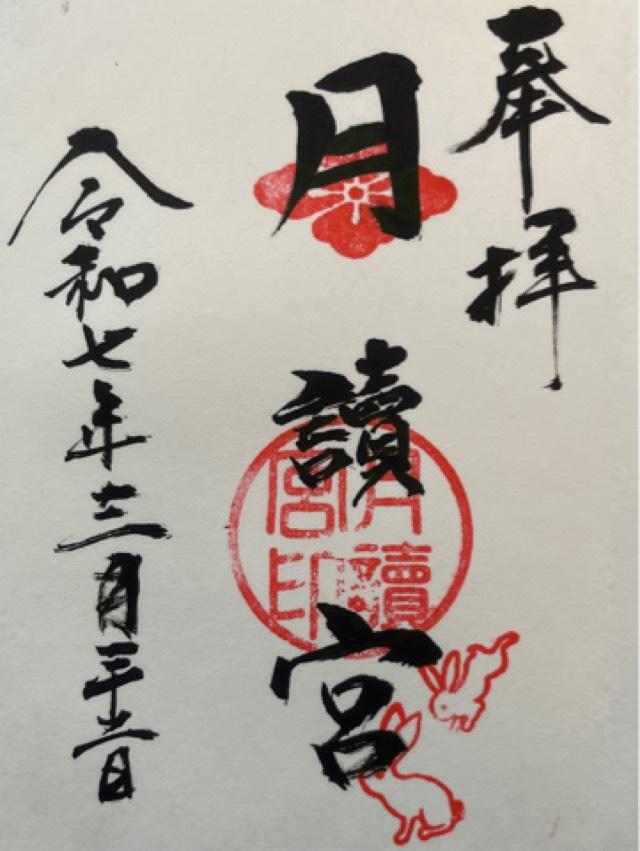 奉拝
月讀宮
月讀宮印
令和七年十二月日